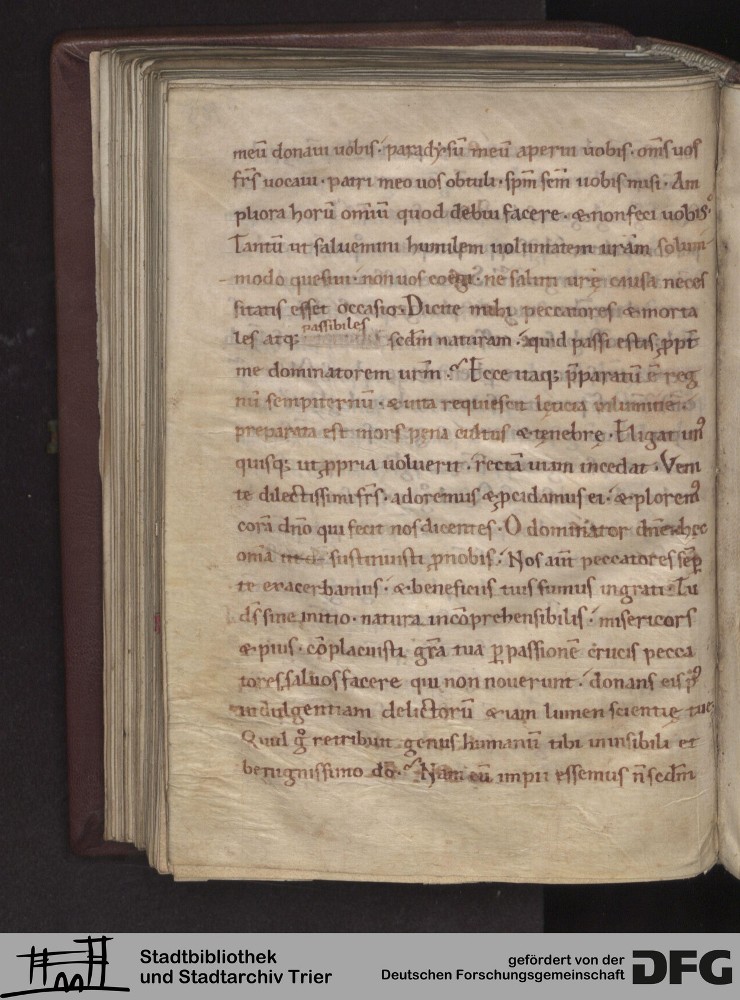 meū donaui uobis· paradysū meū aperui uobis· om̄s uos
fr̄s uocaui· patri meo uos obtuli· sp̄m sc̄m uobis misi· Am
pliora horū omīū quod debui facere· & non feci uobis·
Tantū ut saluemini humilem uoluntatem urām solum
modo quesiui· non uos coegi· ne salutis urę causa neces
sitatis esset occasio· Dicite mihi peccatores & morta
les atq; passibiles scdm naturam· quid passi estis ꝓpt
me dominatorem urm̄· Ecce itaq; p̄paratū ē reg
nū sempiternū· & uita requiescit lęticia
preparata est mors pena & tenebrę· Eligat un᷒
quisq; ut ꝓpria uoluerit· rectā uiam incedat· Veni
te dilectissimi fr̄s· adoremus & ꝓcidamus ei· & plorem᷒
corā dn̄o qui fecit nos dicentes· O dominator dn̄e hęc
om̄ia sustinuisti ꝓ nobis· Nos aūt peccatores sēp
te exacerbamus· & beneficiis tuis sumus ingrati· Tu
ds̄ sine initio· natura incōprehensibilis· misericors
& pius· cōplacuisti gr̄a tua ꝑ passionē crucis pecca
tores saluos facere qui non nouerunt· donans eis
indulgentiam delictorū & iam lumen scientię tuę
Quid g̊ retribuit genus humanū tibi inuisibili et
benignissimo dō· Nam cū impii essemus n̄ scdm
Stadtbibliothek
und Stadtarchiv Trier
gefördert von der
Deutschen Forschungsgemeinschaft
DFG